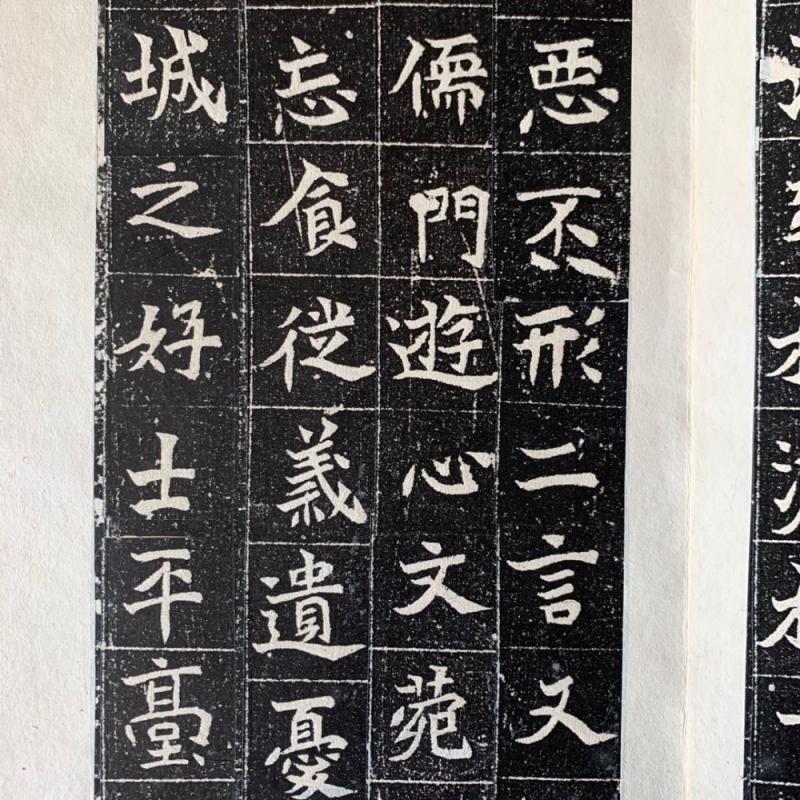 悪丕形二言又
儒門遊心文菀
忘食従義遺憂
城之好士平臺